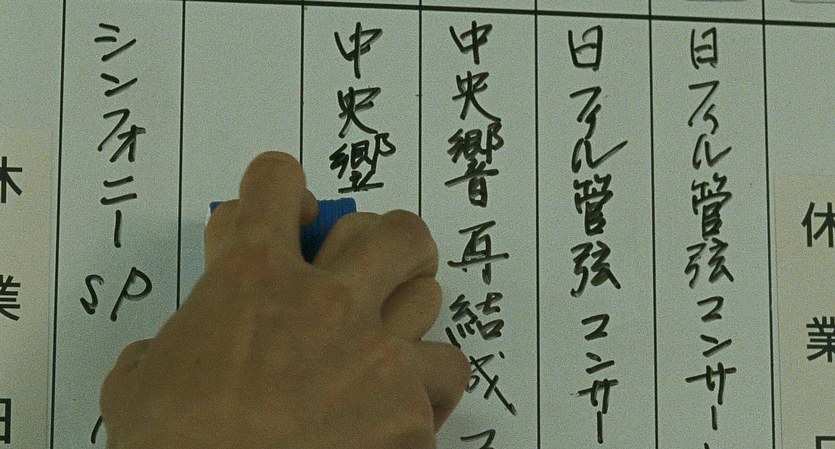 休業日
日フィル管弦コンサート
日フィル管弦コンサー
中央響再結成コ
中央響
シンフォニーSP
休業日